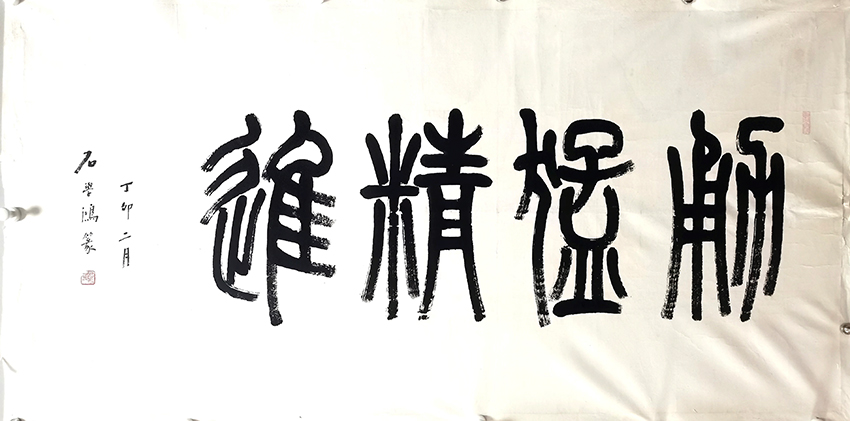 勇猛精進
丁卯二月
石学鴻篆